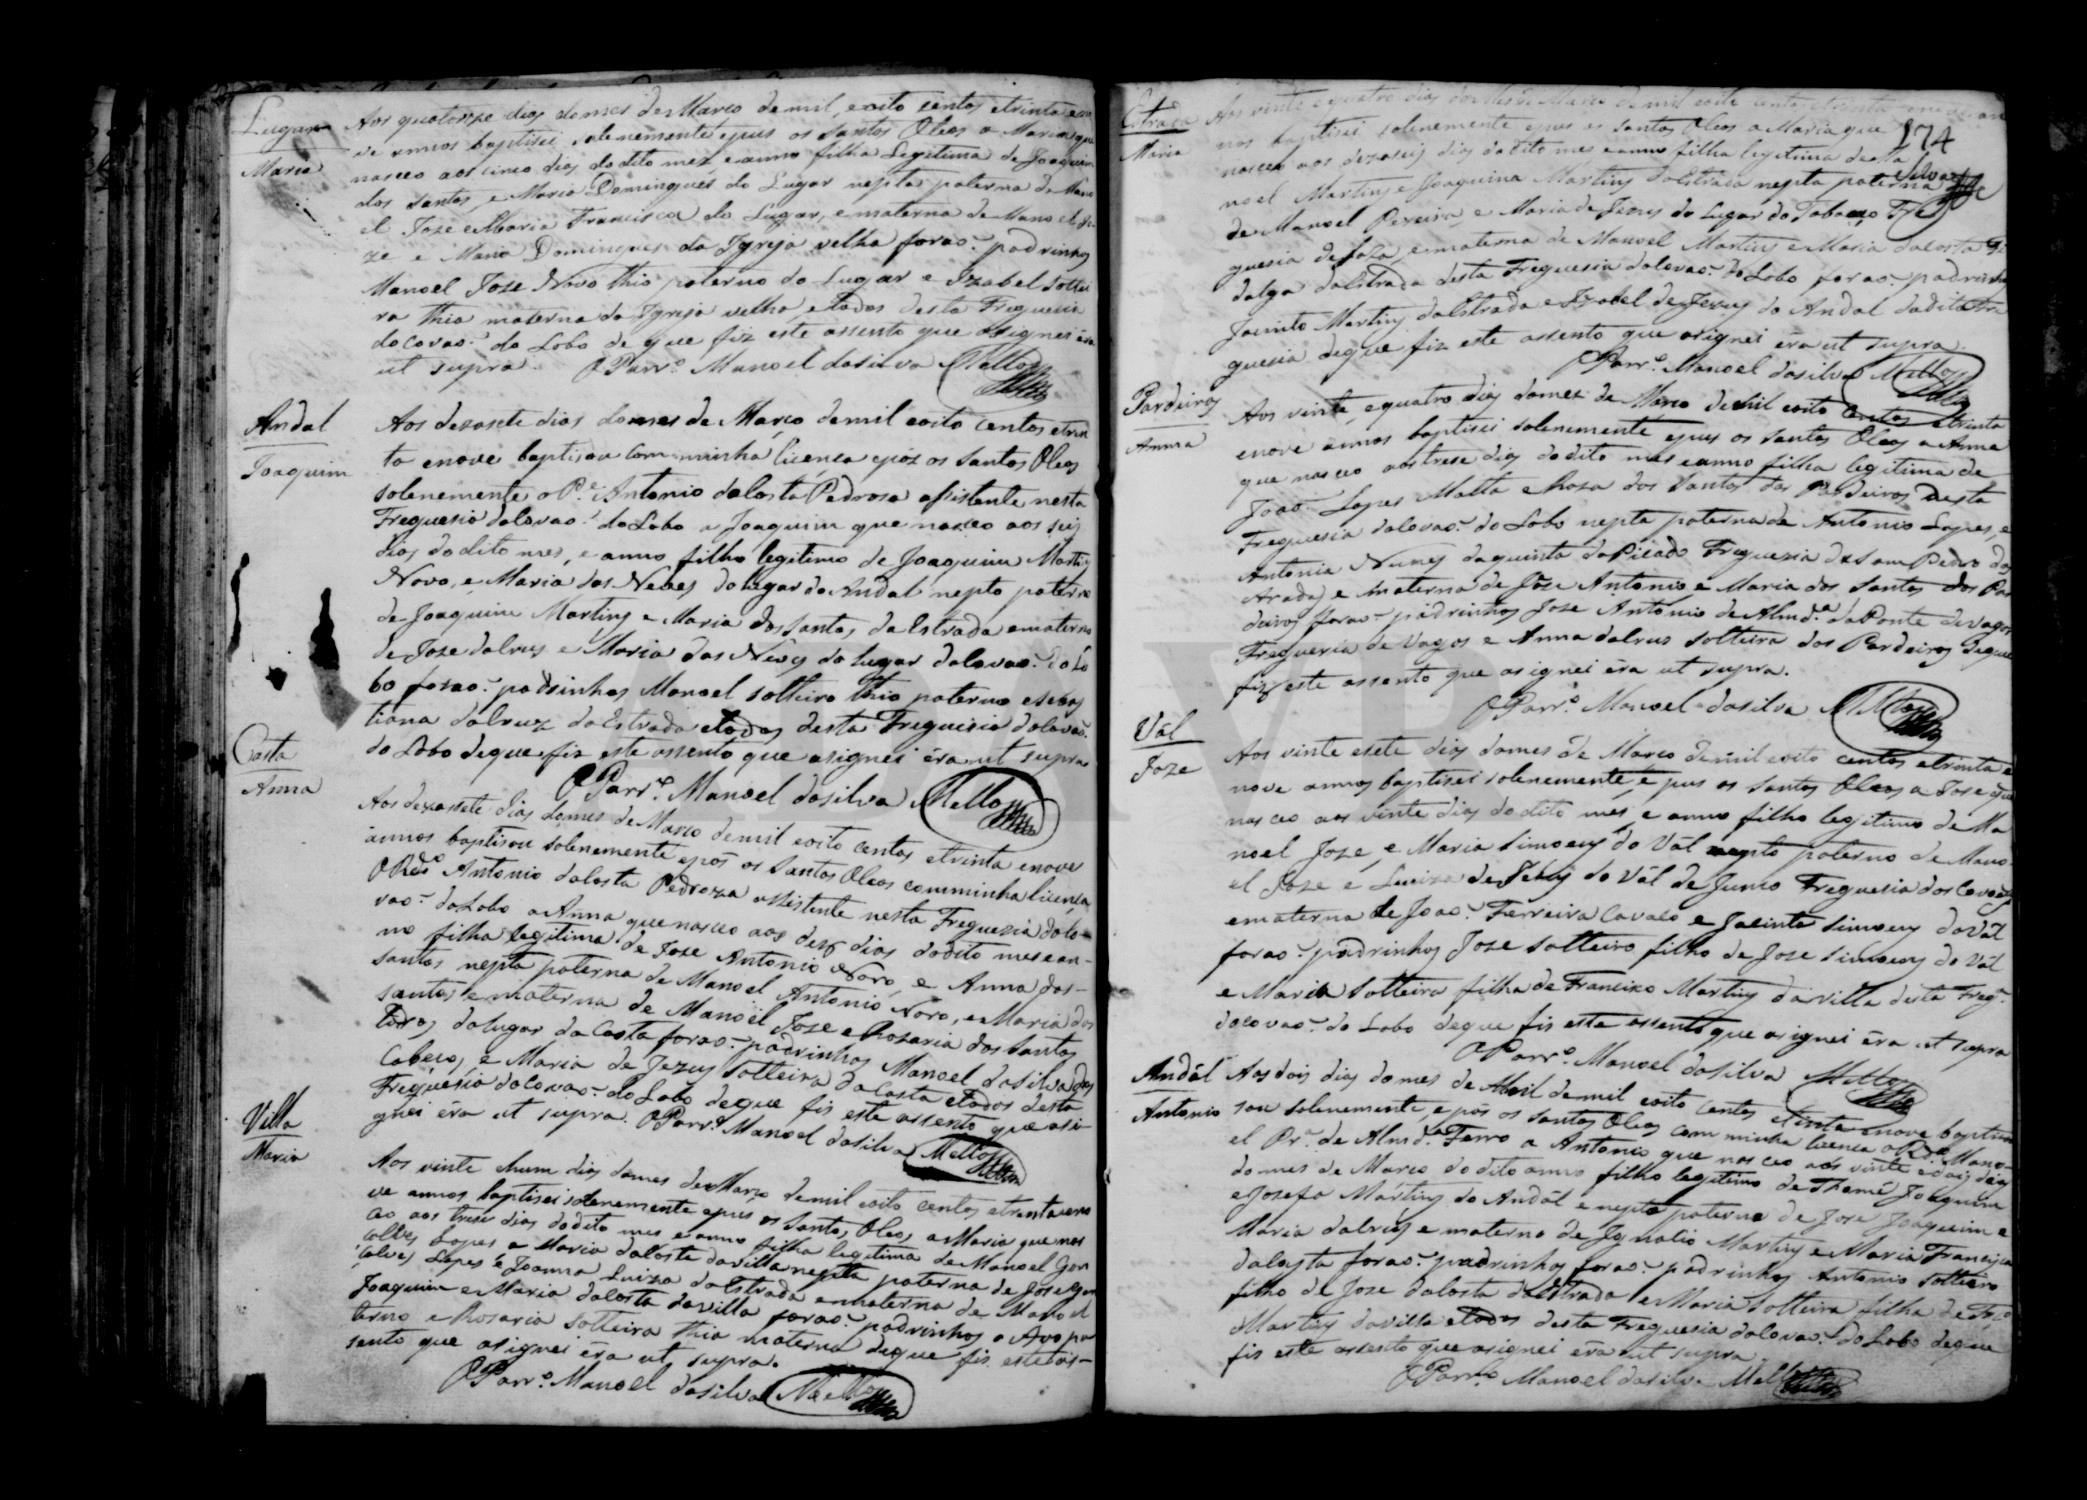 Lugar
Maria
Aos quatorze dias do mes de Marco de mil, e oito centos e trinta e no
ve annos baptisei solenemente e pus os Santos Oleos a Maria que
nasceo aos cinco dias do dito mez e anno filha Legitima de Joaquim
dos Santos, e Maria Domingues do Lugar nepta paterna de Mano
el Joze e Maria Francisca do Lugar, e materna de Manoel
e Maria Domingues da Igreja velha forao padrinhos
Manoel Joze Novo thio paterno do Lugar e Izabel soltei
ra thia materna da Igreja velha e todos desta Freguesia
do Covao do Lobo de que fiz este assento que asignei éra
ut supra. O Parr.º Manoel da silva Mello
Andal
Joaquim
Aos dezasete dias do mes de Março de mil e oito centos e trin
ta e nove baptisou com minha licenca e póz os Santos Oleos
solenemente o P.e Antonio da Costa Pedroza assistente nesta
Freguesia do Covao do Lobo a Joaquim que nasceo aos seis
dias do dito mes, e anno filho legitimo de Joaquim Martins
Novo, e Maria das Neves do lugar do Andal nepto paterno
de Joaquim Martins e Maria dos Santos da Estrada e materno
de Joze da Cruz e Maria das Neves do lugar do Covao do Lo
bo forao padrinhos Manoel solteiro thio paterno e Sebas
tiana da Cruz da Estrada e todos desta Freguesia do Covao
do Lobo de que fiz este assento que asignei éra ut supra
O Parr.º Manoel da silva Mello
Costa
Anna
Aos dezassete dias do mes de Marco de mil e oito centos e trinta e nove
annos baptisou solenemente e pos os Santos Oleos com minha licença
O Rdo Antonio da Costa Pedroza assistente nesta Freguezia do Co-
vao do Lobo a Anna que nasceo aos des dias do dito mes e an-
no filha legitima de Joze Antonio Novo, e Anna dos-
santos nepta paterna de Manoel Antonio Novo, e Maria dos
santos e materna de Manoel Joze e Rosaria dos Santos
todos do lugar da Costa forao padrinhos Manoel da silva dos
Cabeços, e Maria de Jezus solteira da Costa e todos desta
Freguesia do Covao do Lobo de que fis este assento que asi-
gnei éra ut supra. O Parr.º Manoel da silva Mello
Villa
Maria
Aos vinte e hum dias do mes de Março de mil e oito centos e trinta e no
ve annos baptisei solenemente e pus os Santos Oleos a Maria que nas
ceo aos trese dias do dito mes e anno filha legitima de Manoel Gon
calves Lopes e Maria da Costa da villa nepta paterna de Joze Gon
calves Lopes e Joanna Luiza da Estrada e materna de Manoel
Joaquim e Maria da Costa da villa forao padrinhos o Avo pa
terno e Rosaria solteira thia materna de que fis este as-
sento que asignei éra ut supra.
O Parr.º Manoel da silva Mello
174
Estrada
Maria
Aos vinte e quatro dias do mes de Marco de mil e oito centos e trinta e nove an
nos baptisei solenemente e pus os Santos Oleos a Maria que
nasceo aos dezaseis dias do dito mes e anno filha legitima de Ma
noel Martins e Joaquina Martins da Estrada nepta paterna
de Manoel Pereira, e Maria de Jezus do Lugar do Tabuaço Fre
guesia de e materna de Manoel Martins e Maria da Costa
da Estrada desta Freguesia do Covao do Lobo forao padrinhos
Jacinto Martins da Estrada e Izabel de Jezus do Andal da dita Fre
guesia de que fiz este assento que asignei éra ut supra.
O Parr.º Manoel da silva Mello
Pardeiros
Anna
Aos vinte, e quatro dias do mez de Março de mil e oito centos e trinta
e nove annos baptisei solenemente e pus os Santos Oleos a Anna
que nasceo aos trese dias do dito mes e anno filha legitima de
Joao Lopes Matta e Roza dos Santos dos Pardeiros desta
Freguesia do Covao do Lobo nepta paterna de Antonio Lopes, e
Antonia Nunes da quinta do Picado Freguezia de Sam Pedro das
Aradas e materna de Joze Antonio, e Maria dos Santos dos Par
deiros forao padrinhos Joze Antonio de Almd.a da Ponte de vagos
Freguesia de Vagos e Anna da Cruz solteira dos Pardeiros de que
fiz este assento que asignei éra ut supra.
O Parr.º Manoel da silva Mello
Vál
Joze
Aos vinte e sete dias do mes de Marco de mil e oito centos e trinta e
nove annos baptisei solenemente, e pus os Santos Oleos a Joze que
nasceo aos vinte dias do dito mes, e anno filho legitimo de Ma
noel Joze, e Maria Simoens do Vál nepto paterno de Mano
el Joze e Luiza de Jesus do Vál de Junco Freguesia dos Covoes
e materna de Joao Ferreira Cavaco e Jacinta Simoens do Vál
forao padrinhos Joze solteiro filho de Joze Simoens do Vál
e Maria solteira filha de Francisco Martins da villa desta Freg.ª
do Covao do Lobo de que fis este assento que asignei éra ut supra
O Parr.º Manoel da silva Mello
Andál
Antonio
Aos dois dias do mes de Abril de mil e oito centos e trinta e nove bapti
sou solenemente e pós os Santos Oleos com minha licenca o Rdo Mano-
el Pr.ª de Almd.a Ferro a Antonio que nasceo aos vinte e dois dias
do mes de Marco do dito anno filho legitimo de Thomé Joaquim
e Josefa Martins do Andál e nepto paterno de Joze Joaquim e
Maria da Cruz e materno de Ignatio Martins e Maria Francisca
da Costa forao padrinhos forao padrinhos Antonio solteiro
filho de Joze da Costa da Estrada e Maria solteira filha de Frco
Martins da villa e todos desta Freguesia do Covao do Lobo de que
fis este assento que asignei éra ut supra
O Parr.º Manoel da silva Mello